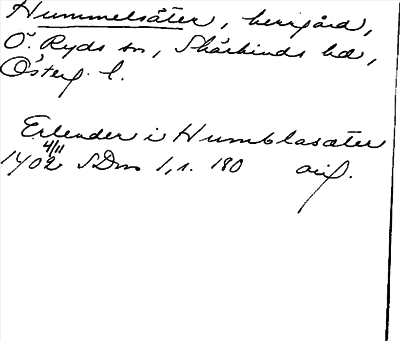 Hummelsäter, herrgård,
Ö. Ryds sn, Skärkinds hd,
Österg. l.
Erlender i Humblasæter
1402 4/11 SDns 1, s. 180 avf.